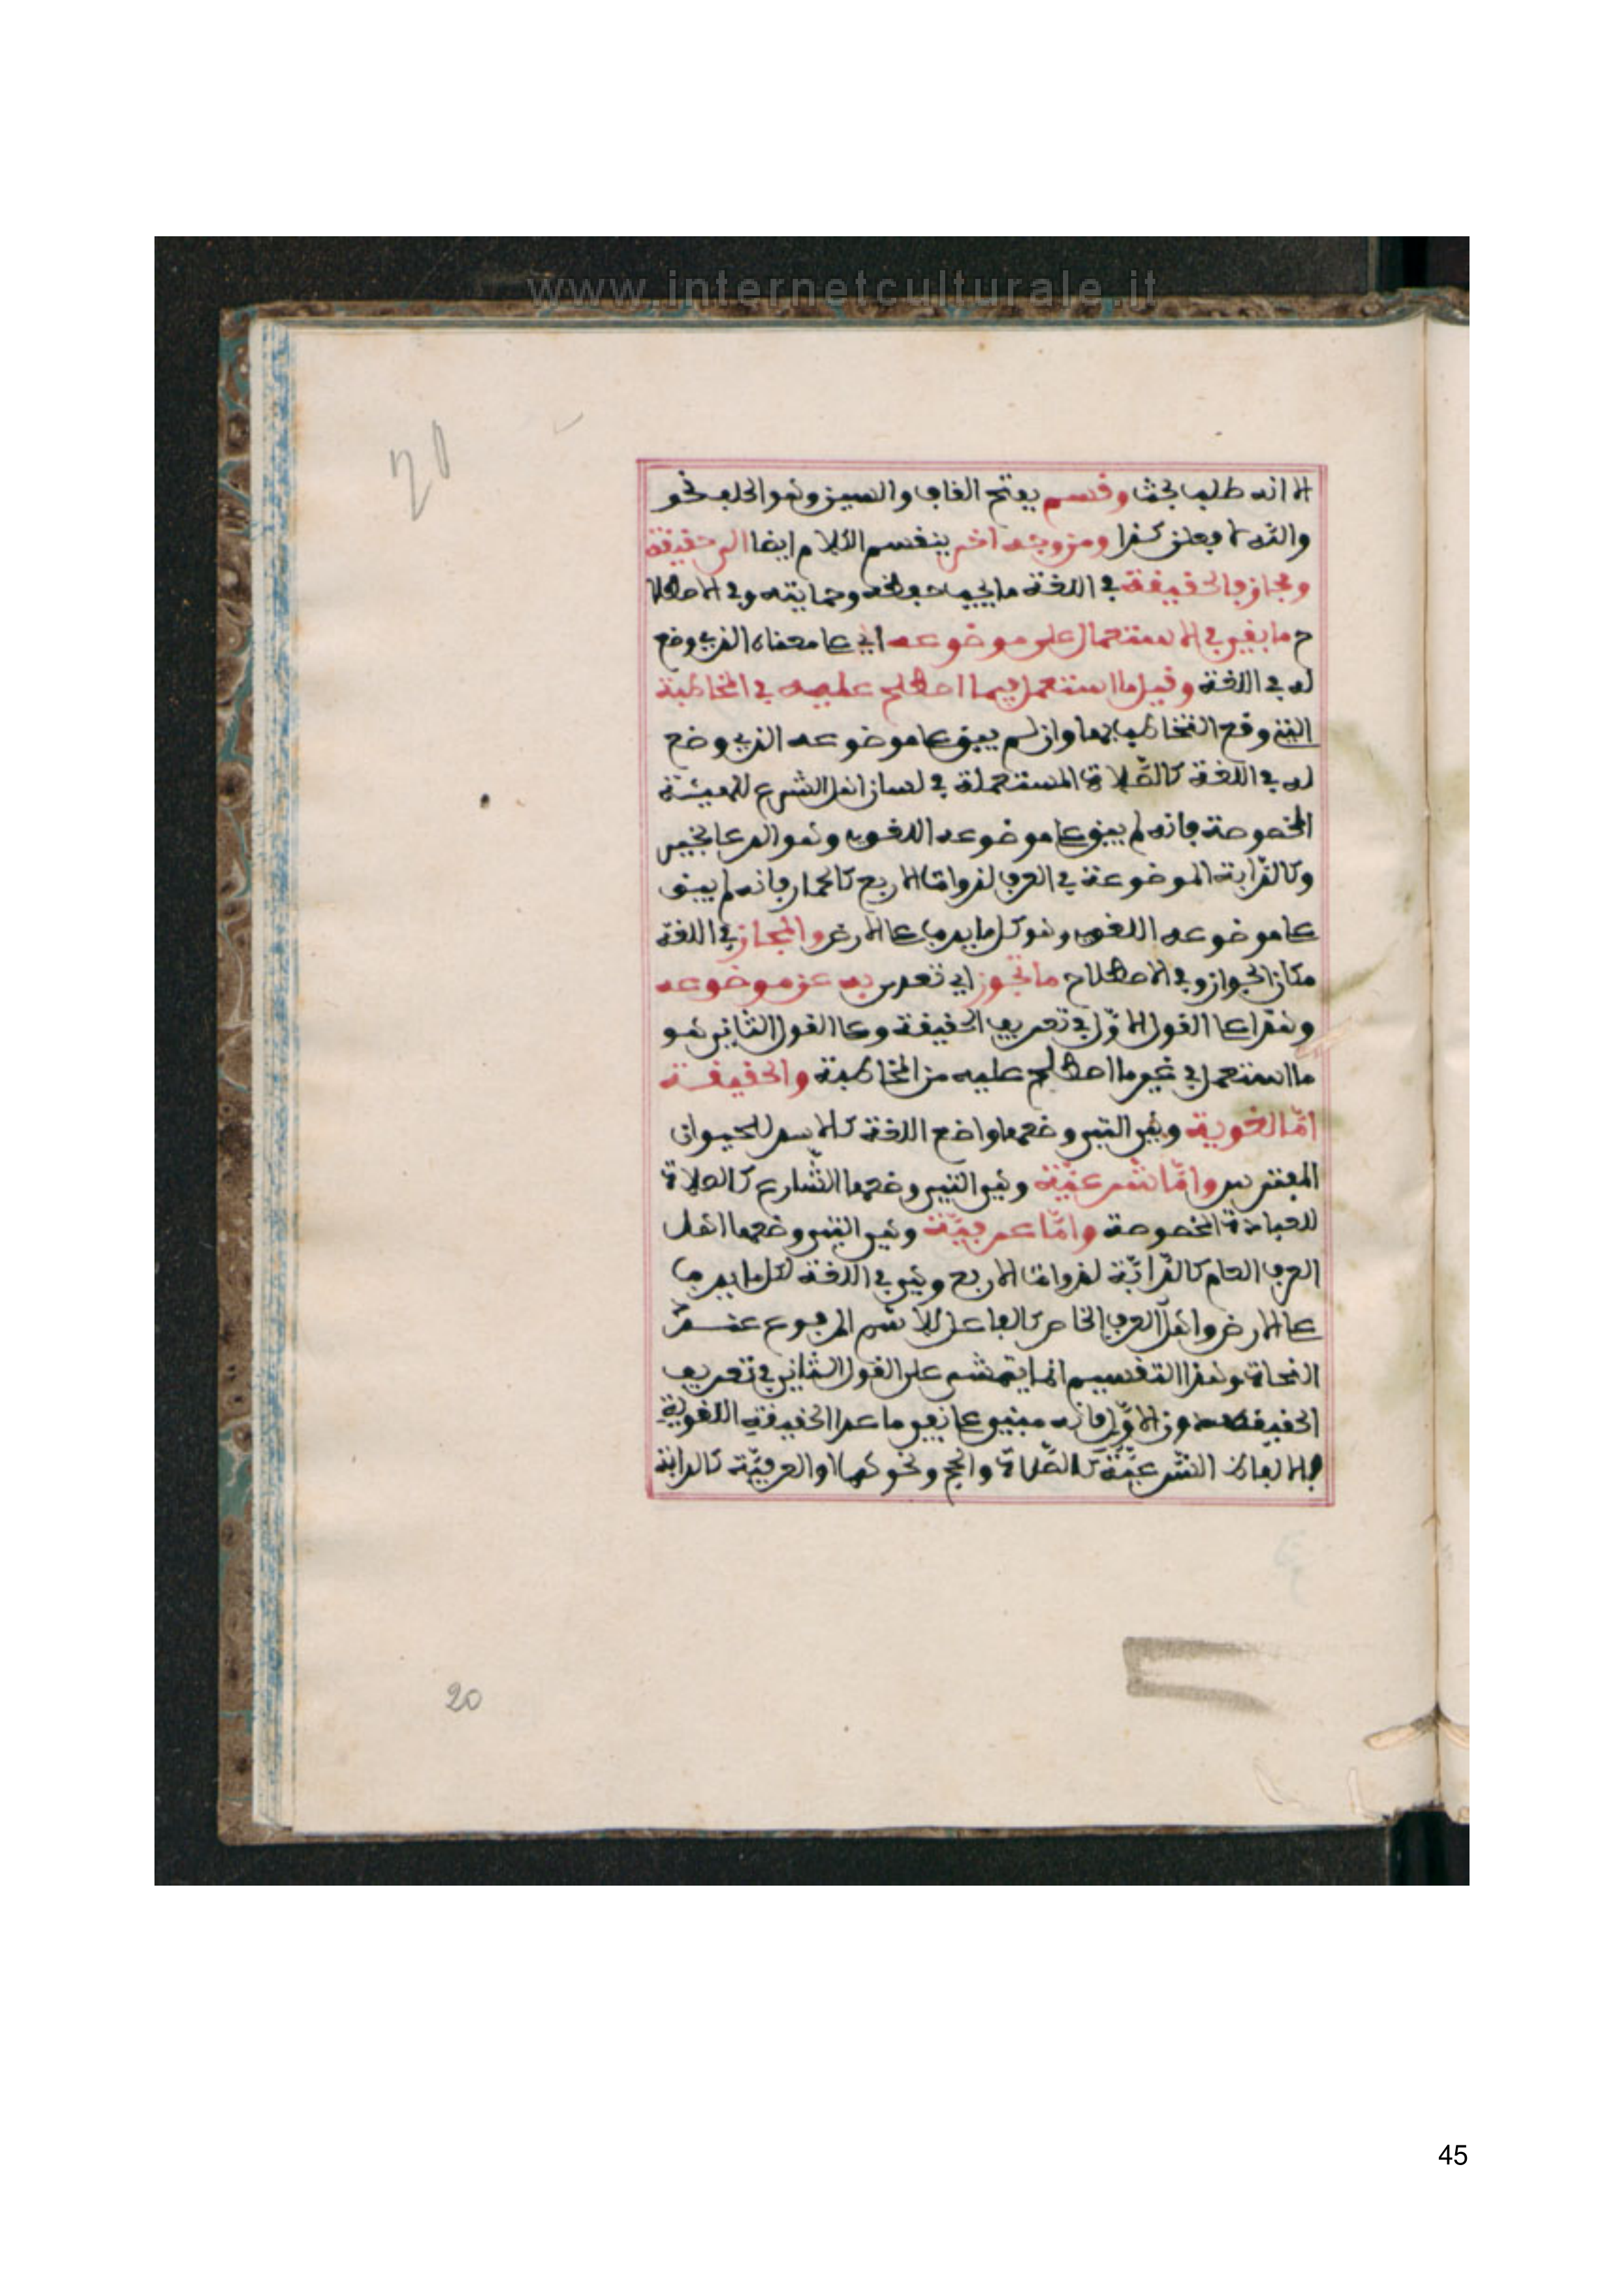 www.internetculturale.it
20
الا انه طلب بحث وقسم بفتح القاف والسين وهو الحلف نحو
والله لافعلن كذا ومن وجه اخر ينقسم الكلام ايضا الى حقيقة
ومجاز فالحقيقة في اللغة ما يجب حفظه وحمايته وفي الاصطلا
ح ما بقي في الاستعمال على موضوعه اي على معناه الذي وضع
له في اللغة وقيل ما استعمل فيما اصطلح عليه في المخاطبة
التي وقع التخاطب بها وان لم يبق على موضوعه الذي وضع
له في اللغة كالصّلاة المستعملة في لسان اهل الشرع للهيئة
المخصوصة فانه لم يبق على موضوعه اللغوي وهو الدعا بخير
وكالدّابة الموضوعة في العرف لذوات الاربع كالحمار فانه لم يبق
على موضوعه اللغوي وهو كل ما يدب على الارض والمجاز في اللغة
مكان الجواز وفي الاصطلاح ما تجوز اي تعدى به عن موضوعه
وهذا على القول الاوّل في تعريف الحقيقة وعلى القول الثاني هو
ما استعمل في غير ما اصطلح عليه من المخاطبة والحقيقة
امّا لغوية وهي التي وضعها واضع اللغة كالاسد للحيوان
المفترس وامّا شرعيّة وهي التي وضعها الشّارع كالصلاة
للعبادة المخصوصة وامّا عرفيّة وهي التي وضعها اهل
العرف العام كالدّابّة لذوات الاربع وهي في اللغة لكل ما يدب
على الارض واهل العرف الخاص كالفاعل للاسم المرفوع عند
النحاة وهذا التقسيم انما يتمشى على القول الثاني في تعريف
الحقيقة دون الاوّل فانه مبني على نفي ما عدا الحقيقة اللغوية
فالالفاظ الشّرعيّة كالصّلاة والحج ونحوهما او العرفيّة كالدابة
20
45